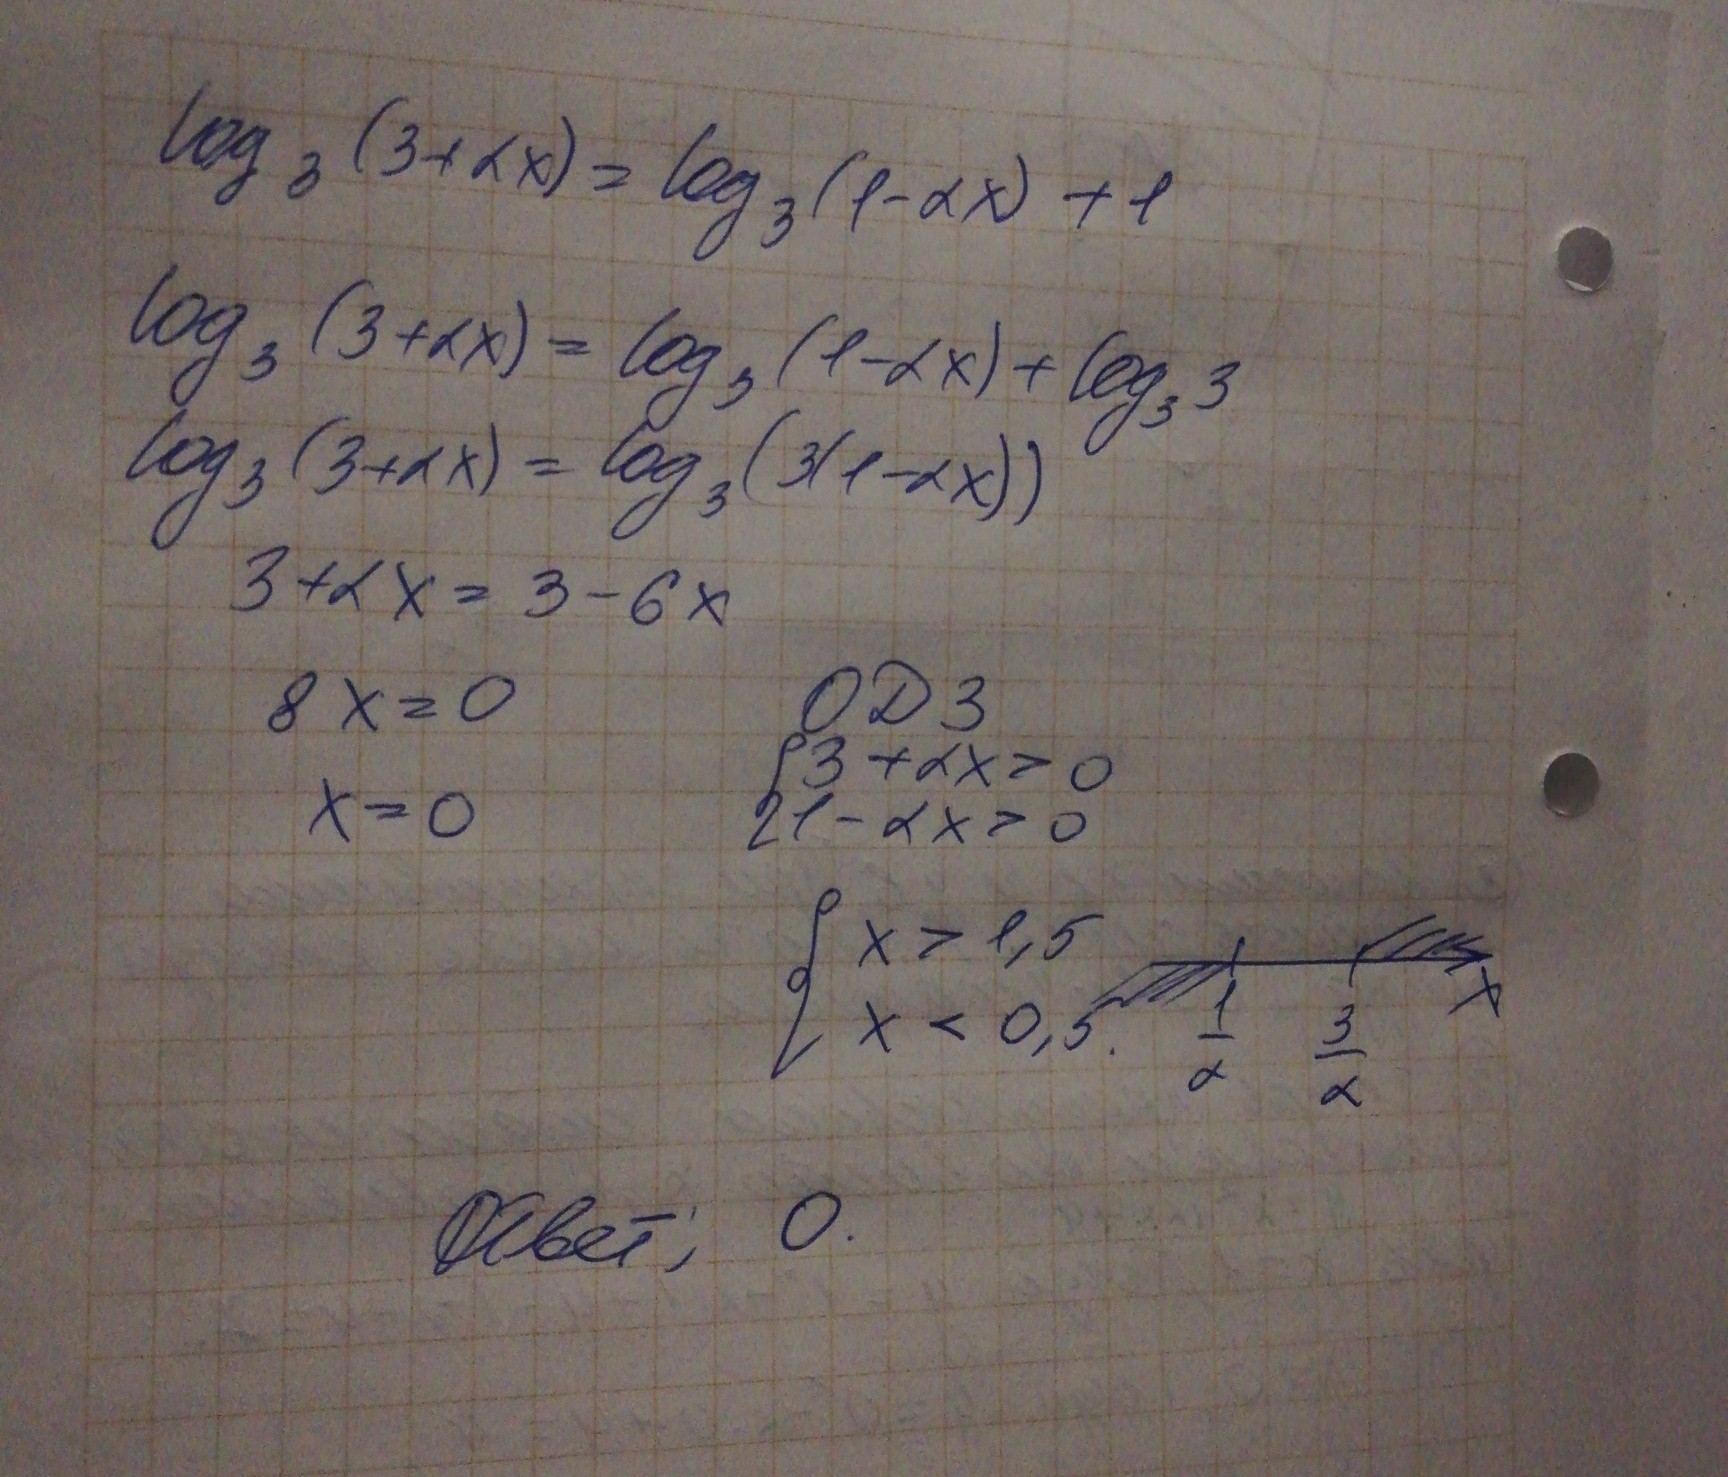 log₃(3+2x) = log₃(1-2x) + 1
log₃(3+2x) = log₃(1-2x) + log₃3
log₃(3+2x) = log₃(3(1-2x))
3+2x = 3-6x
8x=0
x=0
ОДЗ
{3+2x>0
1-2x>0
{x > 1,5
x < 0,5.
1/2 3/2 x
Ответ; 0.